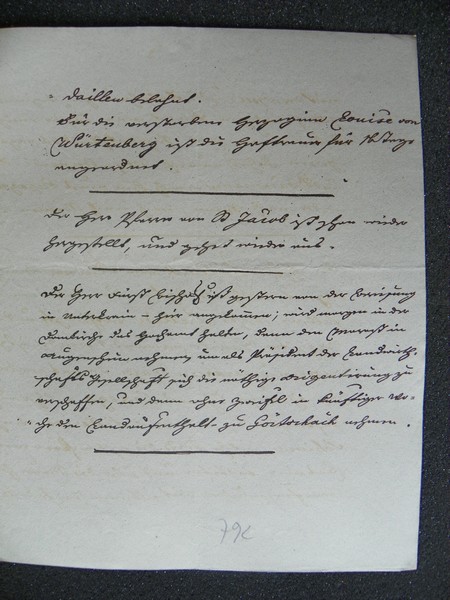 - daillen belohnt.
Für die verstorbene Herzoginn Louise von
Würtenberg ist die Hoftrauer für 16 Tage
angeordnet.
Der Herr Pfarrer von St Jacob ist schon wieder
hergestellt, und gehet wieder aus.
Der Herr Fürst Bischof ist gestern von der Bereisung
in Unterkrain - hier angekommen; wird morgen in der
Domkirche das Hochamt halten, dann den Morast in
Augenschein nehmen um als Präsident der Landwirth-
schafts Gesellschaft sich die nöthige Orientierung zu
verschaffen, und dann ohne Zweifel in künftiger Wo-
- che den Landaufenthalt zu Görtschach nehmen.
79c